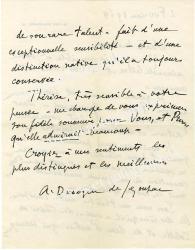 de son rare talent – fait d'une
exceptionnelle sensibilité – et d'une
distinction native qu'il a toujours
conservée.
Thérèse, très sensible à votre
pensée – me charge de vous exprimer
son fidèle souvenir pour Vous, et
qu'elle admirait beaucoup –
Croyez à mes sentiments les
plus distingués et les meilleurs
A. de